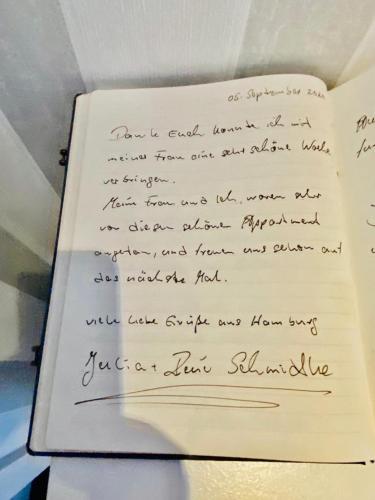 05. September
Danke Euch konnte ich mit
meiner Frau eine sehr schöne Woche
verbringen.
Meine Frau und ich, waren sehr
von diesen schönen Appartment
angetan, und freuen uns schon auf
das nächste Mal.
viele liebe Grüße aus Hamburg
Julia + Schmidtke